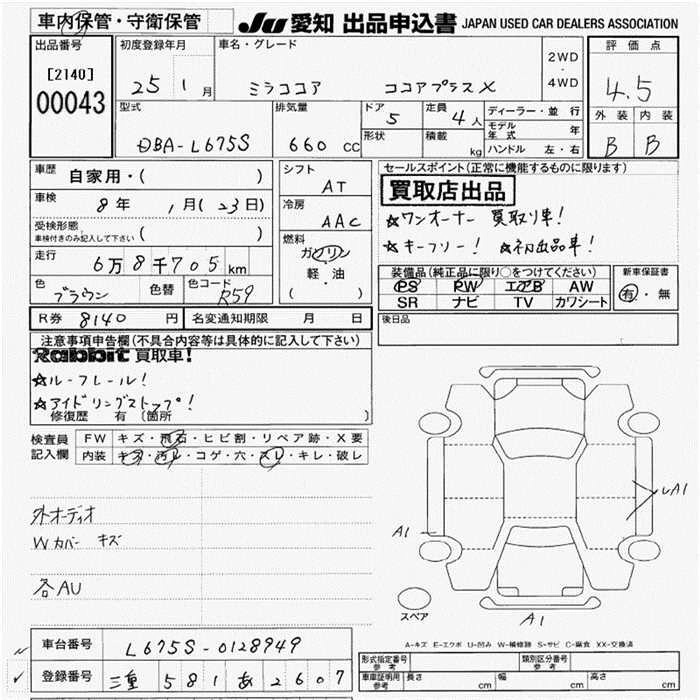 車内保管・守衛保管
JU 愛知 出品申込書 JAPAN USED CAR DEALERS ASSOCIATION
出品番号
[2140]
00043
初度登録年月
25 1 月
車名・グレード
ミラココア ココアプラスX
2WD
・
4WD
評価点
4.5
外装 内装
B B
型式
DBA-L675S
排気量
660 cc
ドア
5
定員
4人
形状
積載
kg
ディーラー・並行
モデル年式 年
ハンドル 左・右
車歴
自家用・( )
車検
8年 1月(23日)
受検形態
車検付きのみ記入して下さい ( )
走行
6万8千705km
色
ブラウン
色替
色コード
R59
シフト
AT
冷房
AAC
燃料
ガソリン
軽・油
( )
セールスポイント(正常に機能するものに限ります)
買取店出品
☆ワンオーナー 買取り車!
☆キーフリー! ☆初出品車!
装備品(純正品に限り○をつけてください)
PS PW エアB AW
SR ナビ TV カワシート
新車保証書
有・無
R券 8140 円
名変通知期限 月 日
後日品
注意事項申告欄(不具合内容等は具体的に記入して下さい)
Rabbit 買取車!
☆ルーフレール!
☆アイドリングストップ!
修復歴 有 〔箇所 〕
検査員記入欄
FW キズ・飛石・ヒビ割・リペア跡・X要
内装 キズ・汚レ・コゲ・穴・スレ・キレ・破レ
外オーディオ
Wカバー キズ
各AU
A1
A1
A1
スペア
A-キズ E-エクボ U-凹み W-補修跡 S-サビ C-腐食 XX-交換済
車台番号
L675S-0128949
登録番号
三重 581 あ 2607
形式指定番号
参考
類別区分番号
参考
車庫証明用
参考
長さ cm
幅 cm
高さ cm